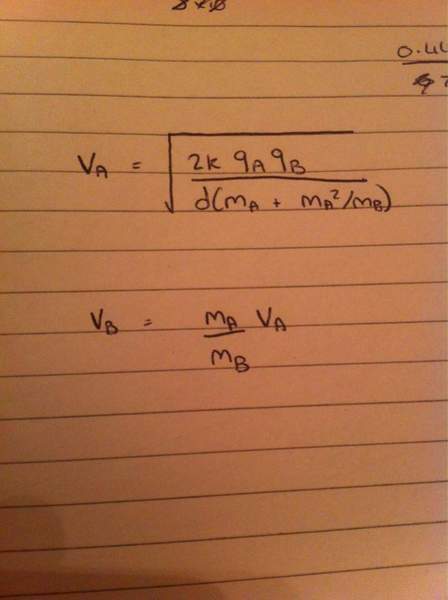 0.44
V_A = √(2k q_A q_B / d(m_A + m_A²/m_B))
V_B = m_A/m_B V_A